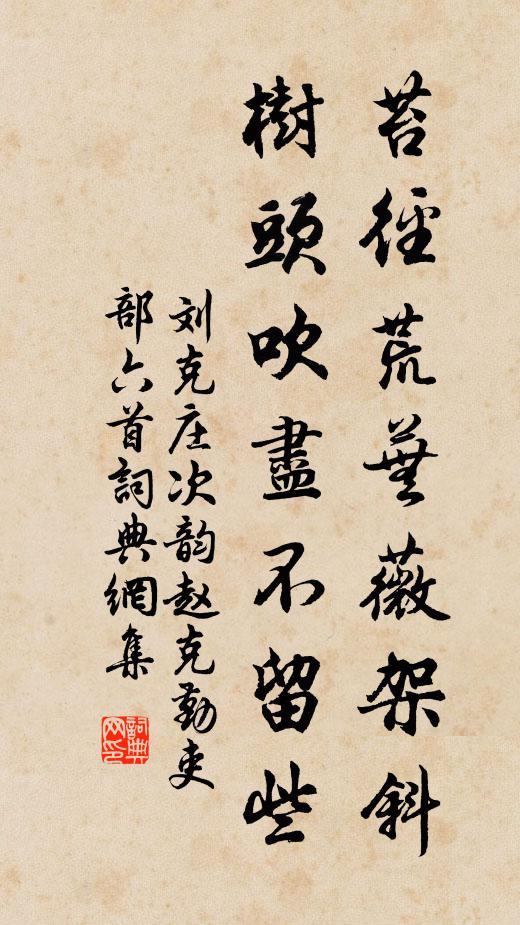 苔徑荒蕪薇架斜
樹頭吹盡不留些
刘克庄次韵赵克勤吏
部六首詞典網集
詞典
网印